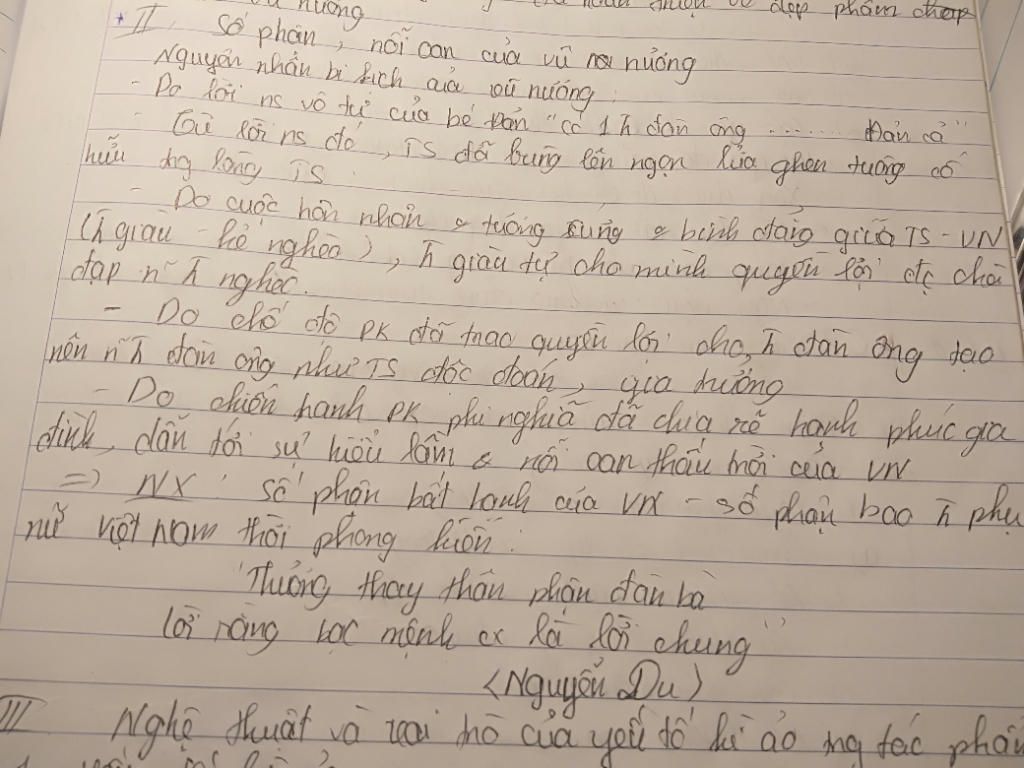 nương
vẻ đẹp phẩm chất
* II, Số phận, nỗi oan của vũ nương
Nguyên nhân bi kịch của vũ nương
- Do lời ns vô tư của bé Đản "có 1 h̄ đàn ông ........ Đản cả"
- Từ lời ns đó, TS đã bùng lên ngọn lửa ghen tuông cố
hữu ng lòng TS
- Do cuộc hôn nhân o tương xứng o bình đẳng giữa TS - VN
(h̄ giàu - kẻ nghèo), h̄ giàu tự cho mình quyền lợi đc chà
đạp n~ h̄ nghèo.
- Do chế độ PK đã trao quyền lợi cho h̄ đàn ông tạo
nên n~ h̄ đàn ông như TS độc đoán, gia trưởng
- Do chiến tranh PK phi nghĩa đã chia rẽ hạnh phúc gia
đình, dẫn tới sự hiểu lầm & nỗi oan thấu trời của VN
=> NX: số phận bất hạnh của VN - số phận bao h̄ phụ
nữ việt nam thời phong kiến:
"Thương thay thân phận đàn bà
lời rằng bạc mệnh cx là lời chung"
<Nguyễn Du>
III Nghệ thuật và vai trò của yếu tố kì ảo ng tác phẩm